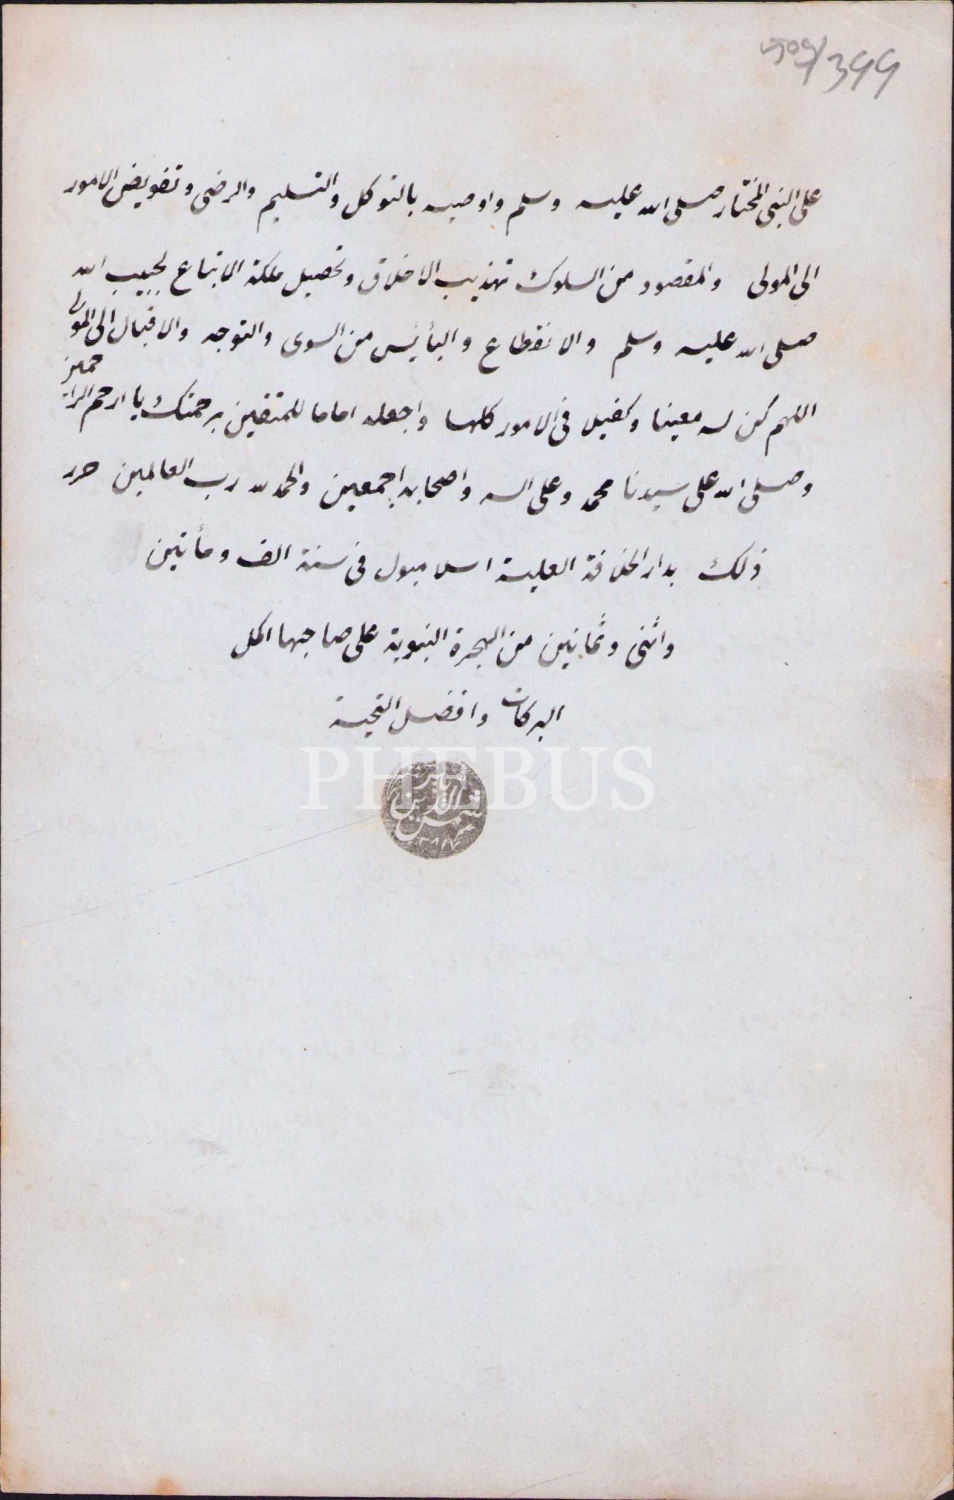 399
على النبى المختار صلى الله عليه وسلم واوصيه بالتوكل والتسليم والرضى وتفويض الامور
الى المولى والمقصود من السلوك تهذيب الاخلاق وتحصيل ملكة الاتباع لحبيب الله
صلى الله عليه وسلم والانقطاع واليأئس من السوى والتوجه والاقبال الى المولى
اللهم كن له معينا وكفيلا فى الامور كلها واجعله اماما للمتقين برحمتك يا ارحم الراحمين
وصلى الله على سيدنا محمد وعلى اله واصحابه اجمعين والحمد لله رب العالمين حرر
ذلك بدار الخلافة العلية اسلامبول فى سنة الف ومأتين
واثنى وثمانين من الهجرة النبوية على صاحبها اكمل
البركات وافضل التحية
PHEBUS
شمس الدين